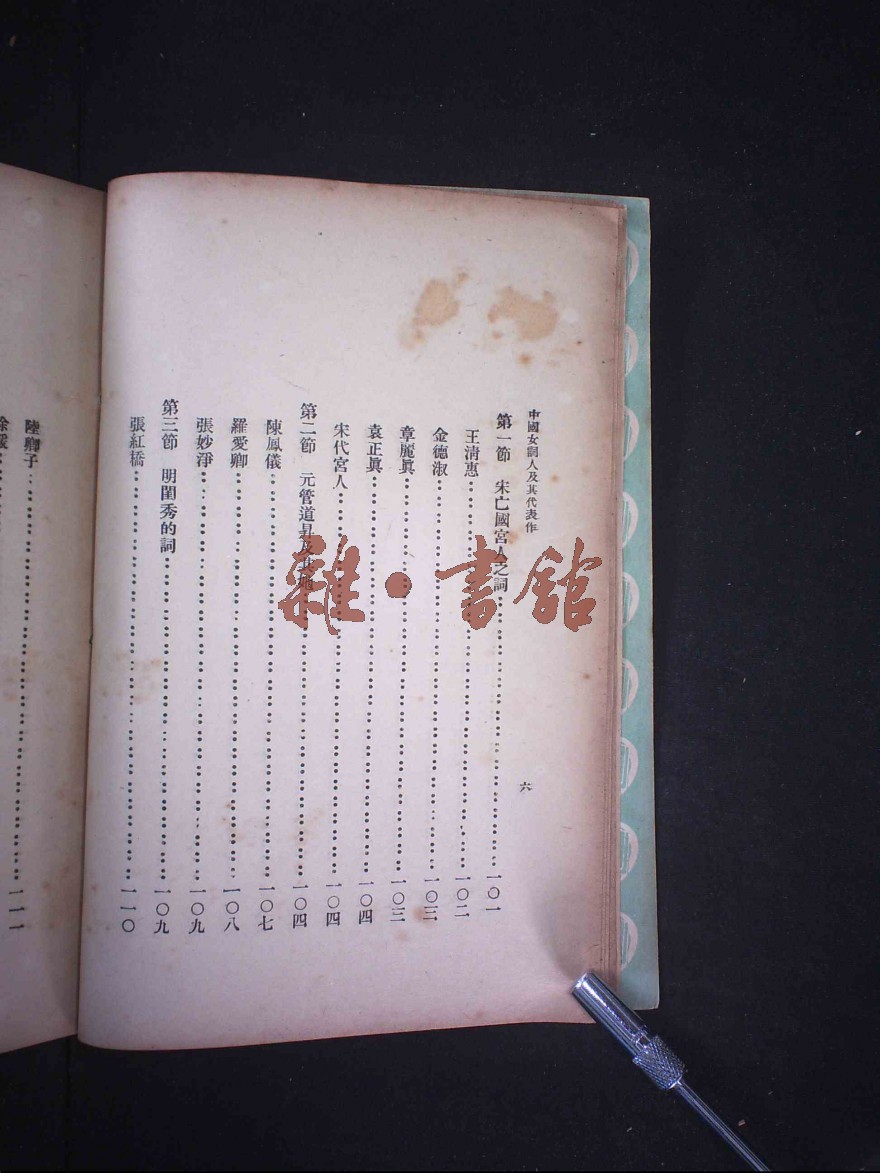 中國女詞人及其代表作
六
第一節　宋亡國宮人之詞……一〇一
王清惠……一〇二
金德淑……一〇三
章麗眞……一〇三
袁正眞……一〇四
宋代宮人……一〇四
第二節　元管道昇及其他……一〇四
陳鳳儀……一〇七
羅愛卿……一〇八
張妙淨……一〇九
第三節　明閨秀的詞……一〇九
張紅橋……一一〇
陸卿子……一一一
徐媛
雜·書館